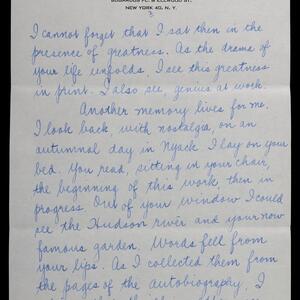 BOGARDUS PL. & ELLWOOD ST.
NEW YORK 40, N. Y.
3
I cannot forget that I sat then in the
presence of greatness. As the drama of
your life unfolds, I see this greatness
in print. I also see, genius at work.
Another memory lives for me.
I look back, with nostalgia, on an
autumnal day in Nyack. I lay on your
bed. You read, sitting in your chair,
the beginning of this work, then in
progress. Out of your window I could
see the Hudson river and your now
famous garden. Words fell from
your lips. As I collected them from
the pages of the autobiography, I